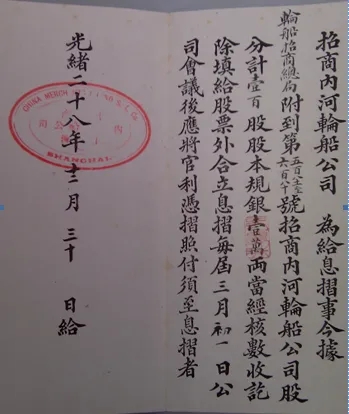 招商內河輪船公司 為給息摺事今據
輪船招商總局 附到第五百十壹至六百十號招商內河輪船公司股
分計壹百股股本規銀壹萬兩當經核數收訖
除填給股票外合立息摺每屆三月初一日公
司會議後應將官利憑摺照付須至息摺者
光緒二十八年十二月三十 日給
CHINA MERCH
CO.
SHANGHAI